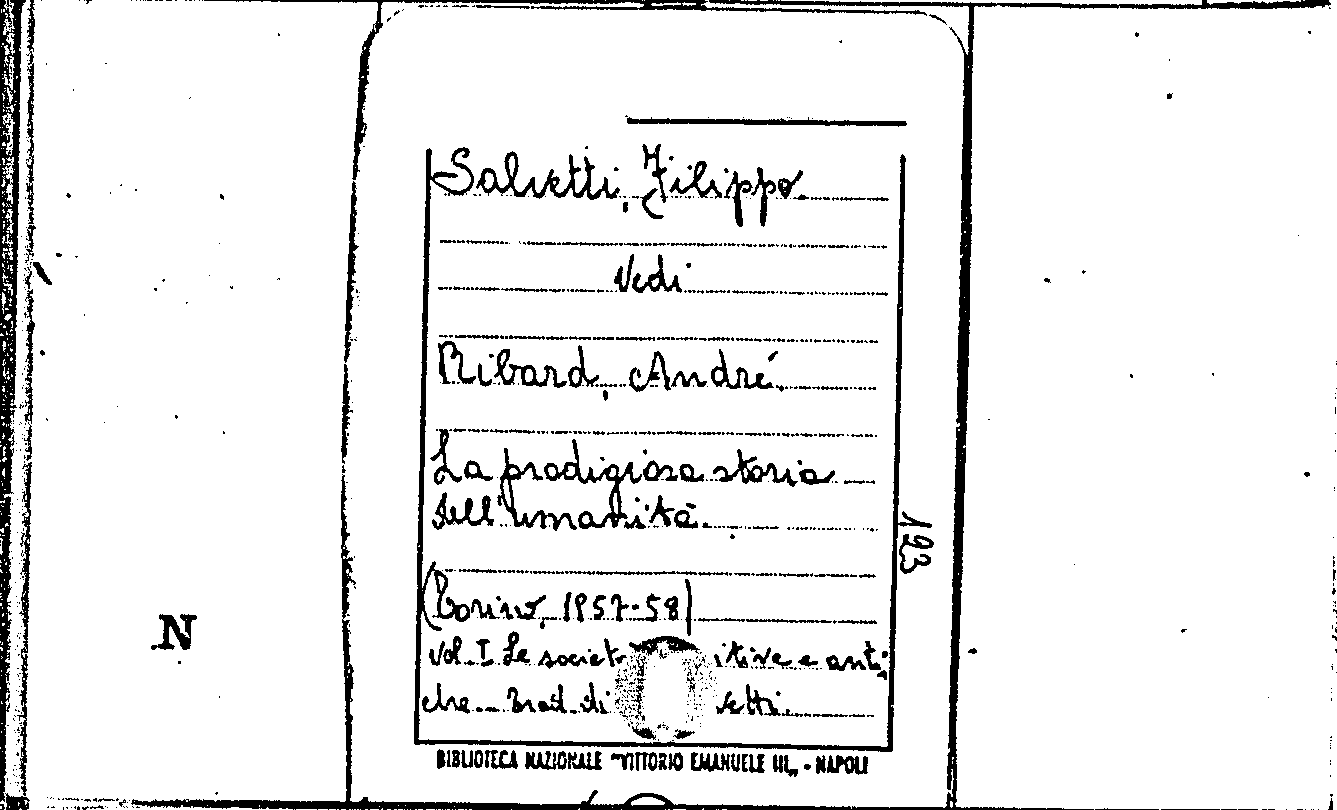 Salvetti, Filippo.
Vedi
Ribard, André.
La prodigiosa storia
dell'umanità.
(Torino, 1957-58)
vol. I Le societ itive e anti
che. Trad. di vetti.
193
N
BIBLIOTECA NAZIONALE "VITTORIO EMANUELE III„ - NAPOLI